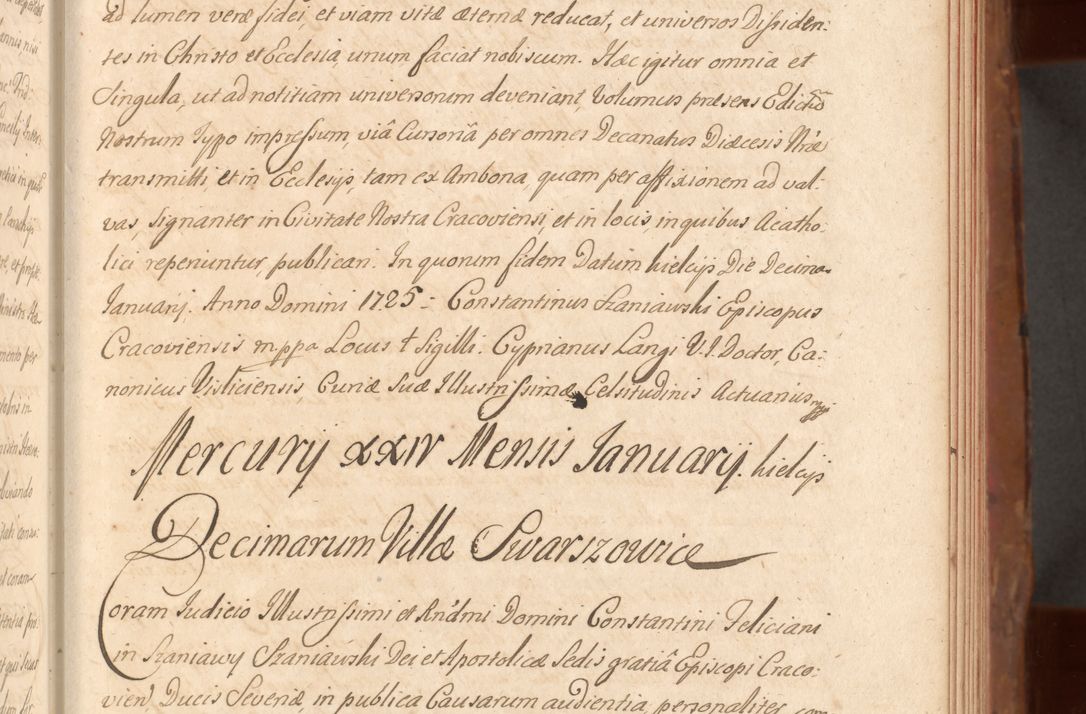 ad lumen veræ fidei, et viam vitæ æternæ reducat, et universos Dissiden:
tes in Christo et Ecclesia, unum faciat nobiscum. Hæc igitur omnia et
Singula, ut ad notitiam universorum deveniant, Volumus præsens Edictũ
Nostrum Typo impressum, viâ Cursoriâ per omnes Decanatus Diæcesis Nræ
transmitti, et in Ecclesijs, tam ex Ambona, quam per affixionem ad val:
vas, signanter in Civitate Nostra Cracoviensi, et in locis, in quibus Acatho:
lici reperiuntur, publicari. In quorum fidem Datum Kielcijs Die Decima
Januarij. Anno Domini 1725. Constantinus Szaniawski Episcopus
Cracoviensis mppa Locus † Sigilli. Cyprianus Langi V.I. Doctor, Ca:
nonicus Visliciensis, Curiæ Suæ Illustrissimæ Celsitudinis Actuarius mpp
Mercurij XXIV Mensis Januarij. Kielcijs
Decimarum Villæ Swarszowice
Coram Judicio Illustrissimi et Rndmi Domini Constantini Feliciani
in Szaniawy Szaniawski Dei et Apostolicæ Sedis gratiâ Episcopi Craco:
vien, Ducis Severiæ, in publica Causarum audientia personaliter com